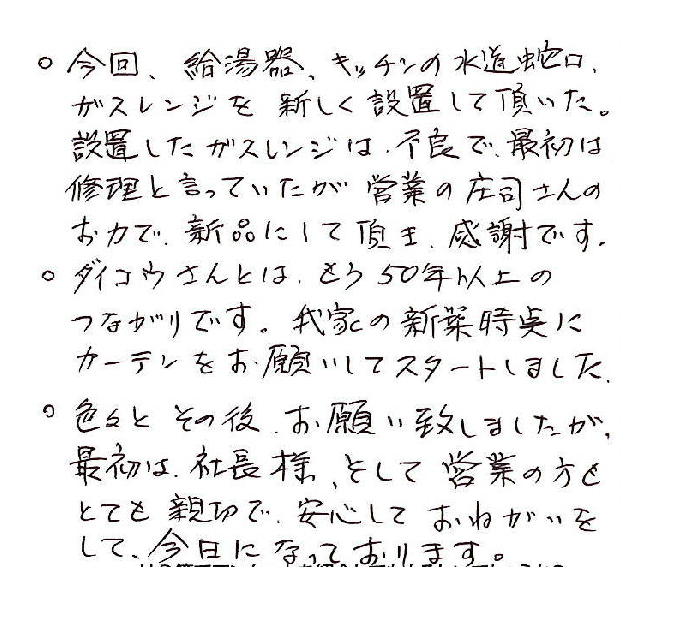 ○ 今回、給湯器、キッチンの水道蛇口、
ガスレンジを新しく設置して頂いた。
設置したガスレンジは、不良で、最初は
修理と言っていたが営業の庄司さんの
お力で、新品にして頂き、感謝です。
○ ダイコウさんとは、もう50年以上の
つながりです。我家の新築時点に
カーテンをお願いしてスタートしました。
○ 色々とその後、お願い致しましたが、
最初は、社長様、そして営業の方も
とても親切で、安心しておねがいを
して、今日になっております。